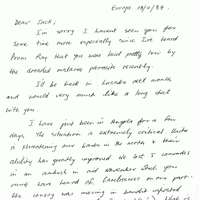 Europe. 18/4/87.
Dear Jack,
I'm sorry I haven't seen you for
some time more especially since I've heard
from Ray that you were laid pretty low by
the dreaded malaria parasite recently.
I'll be back in Lusaka next month
and would very much like a long chat
with you.
I have just been in Angola for a few
days. The situation is extremely critical. Unita
is threatening our bases in the north & their
ability has greatly improved. We lost 7 comrades
in an ambush in
must have heard of. Carelessness on our part.
The convoy was moving in bandit infested